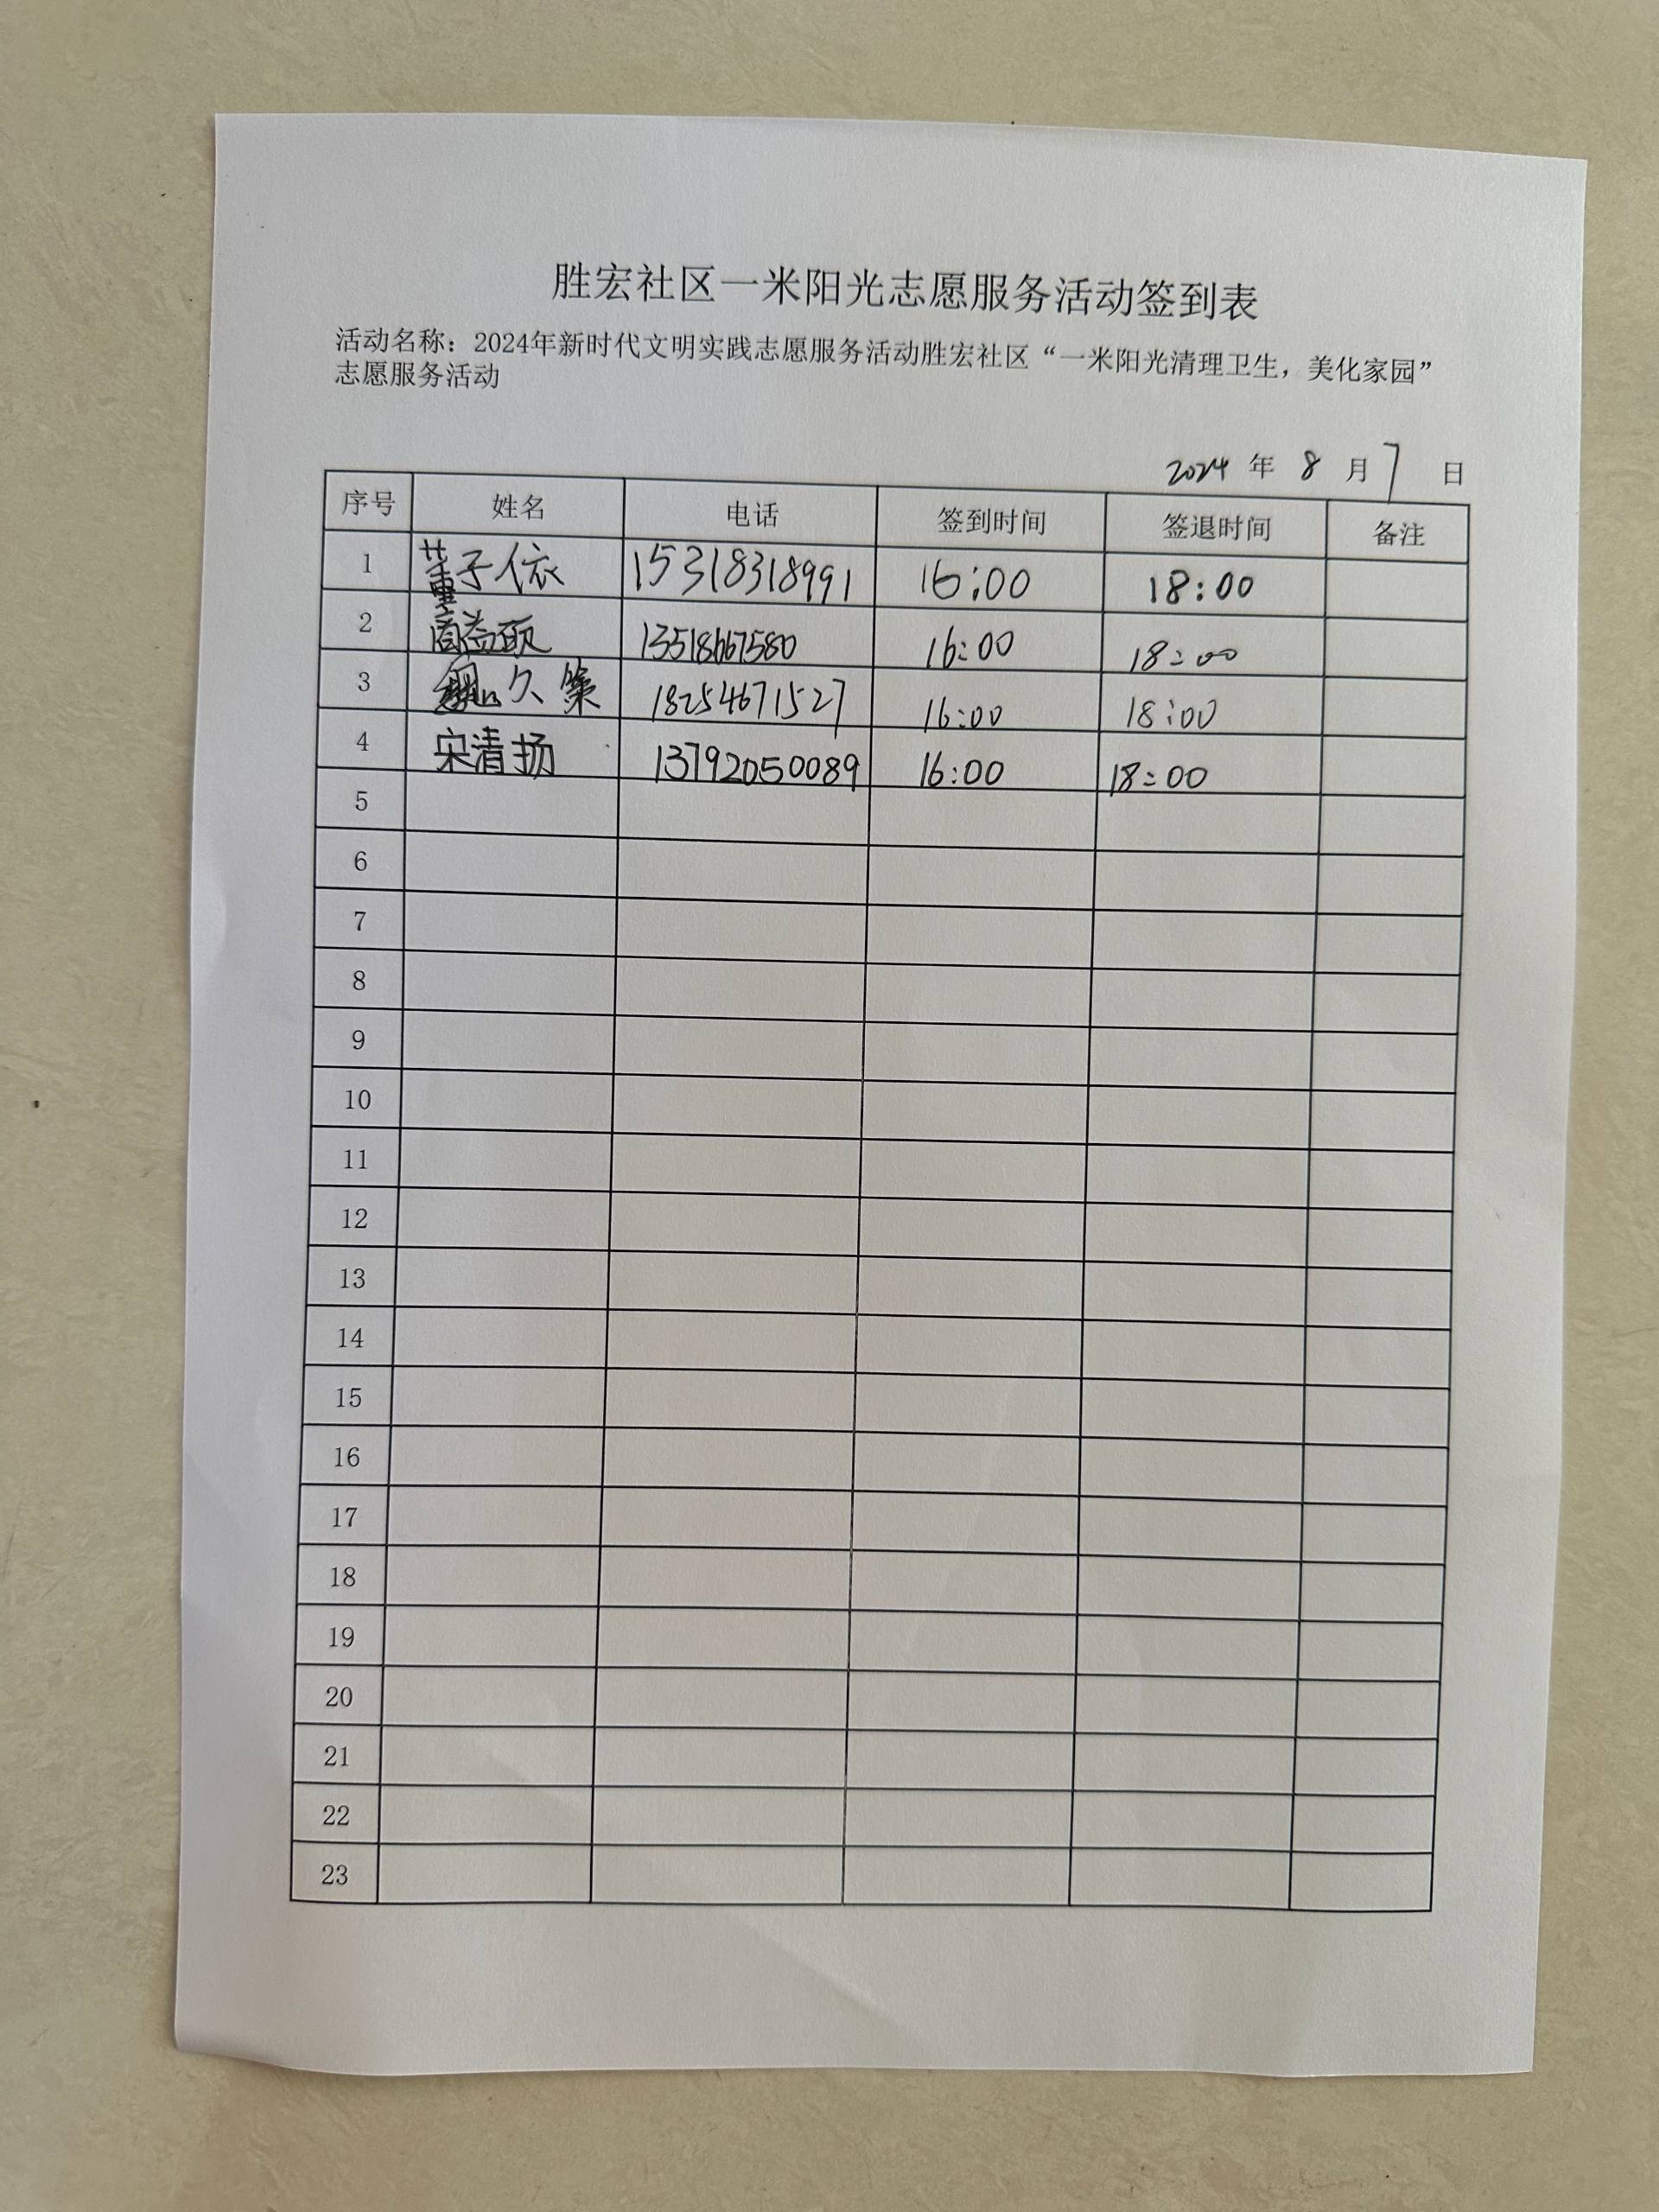 胜宏社区一米阳光志愿服务活动签到表
活动名称：2024年新时代文明实践志愿服务活动胜宏社区“一米阳光清理卫生，美化家园”
志愿服务活动
2024 年 8 月 7 日
序号 姓名 电话 签到时间 签退时间 备注
1 董子依 15318318991 16:00 18:00
2 商益硕 13518667580 16:00 18:00
3 久策 18254671527 16:00 18:00
4 宋清扬 13792050089 16:00 18:00
5
6
7
8
9
10
11
12
13
14
15
16
17
18
19
20
21
22
23